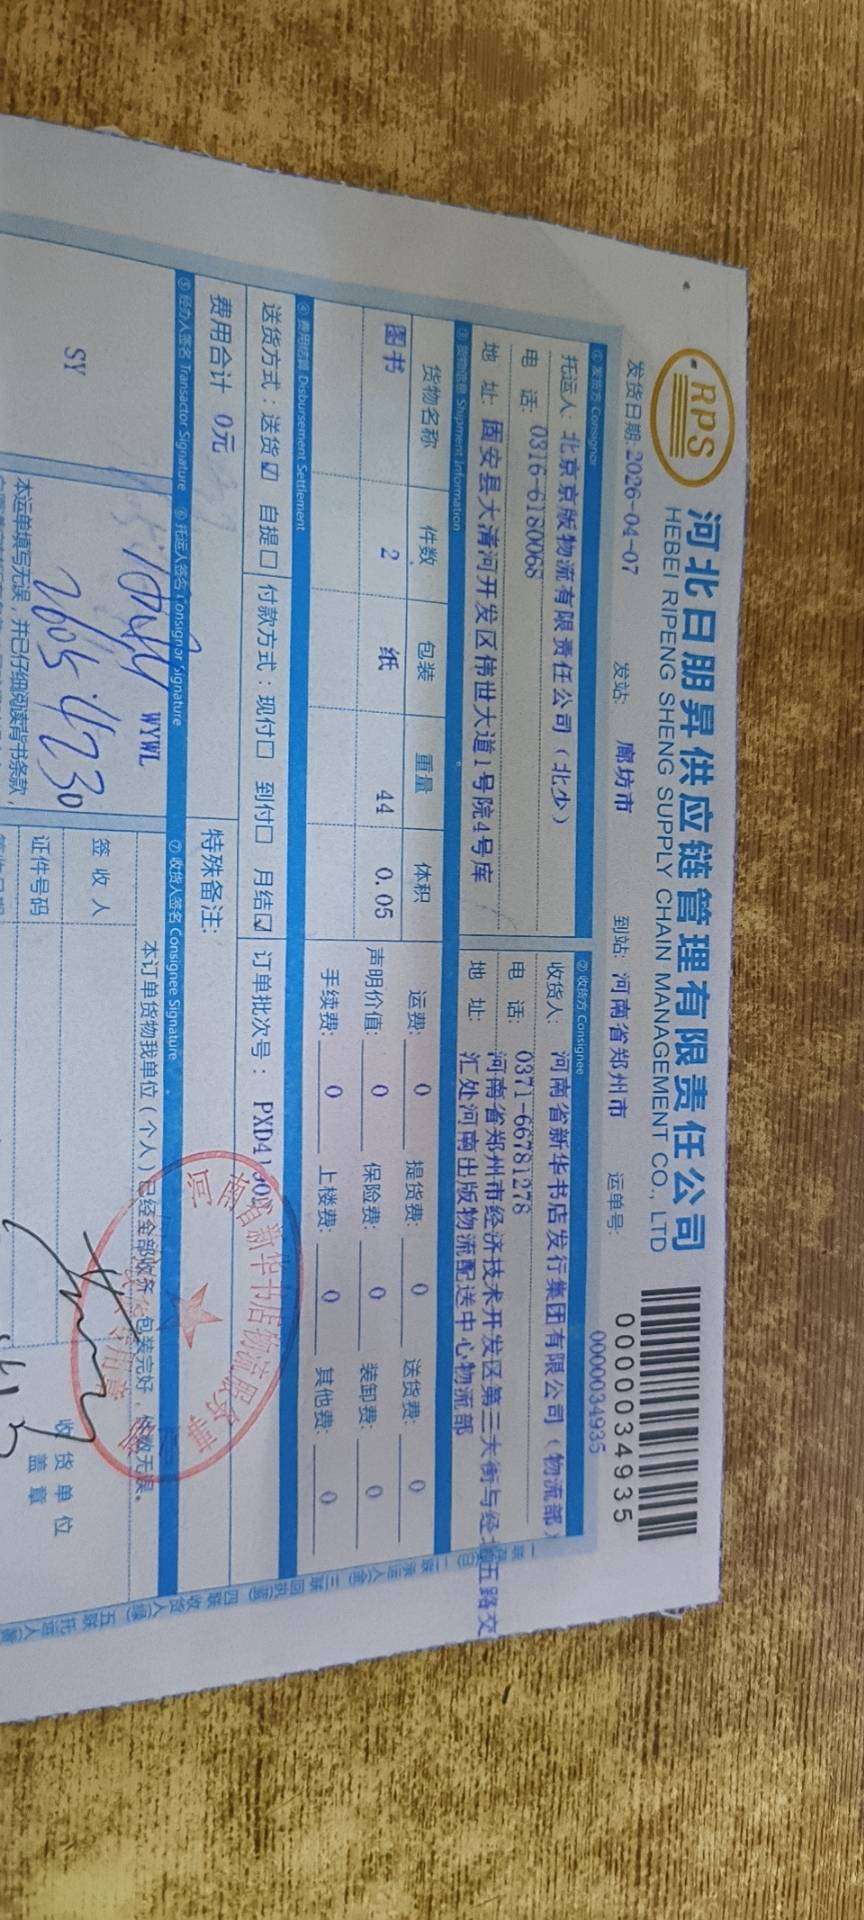 RPS
河北日朋昇供应链管理有限责任公司
HEBEI RIPENG SHENG SUPPLY CHAIN MANAGEMENT CO., LTD
0000034935
发货日期: 2026-04-07 发站: 廊坊市 到站: 河南省郑州市 运单号: 0000034935
① 发货方 Consignor ② 收货方 Consignee
托运人: 北京京版物流有限责任公司（北少） 收货人: 河南省新华书店发行集团有限公司（物流部）
电 话: 0316-6180068 电 话: 0371-66781278
地 址: 固安县大清河开发区伟世大道1号院4号库 地 址: 河南省郑州市经济技术开发区第三大街与经 五路交
汇处河南出版物流配送中心物流部
③ 货物信息 Shipment Information
货物名称 件数 包装 重量 体积 运费: 0 提货费: 0 送货费: 0
图书 2 纸 44 0.05 声明价值: 0 保险费: 0 装卸费: 0
手续费: 0 上楼费: 0 其他费: 0
④ 费用结算 Disbursement Settlement
送货方式：送货☑ 自提□ 付款方式：现付□ 到付□ 月结☑ 订单批次号：
费用合计 0元 特殊备注:
⑤ 经办人签名 Transactor Signature ⑥ 托运人签名 Consignor Signature ⑦ 收货人签名 Consignee Signature
SY
WYWL
本订单货物我单位（个人）已经全部收齐，包装完好，件数无误。
签 收 人
证件号码
收 货 单 位
盖 章
本运单填写无误，并已仔细阅读背书条款，
河南省新华书店物流服务